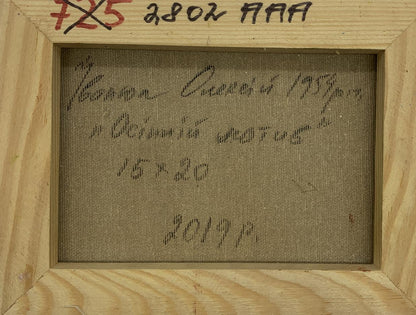 725 2802 AAA
Іванюк Олексій 1954р.н.
"Осінній мотив"
15×20
2019р.